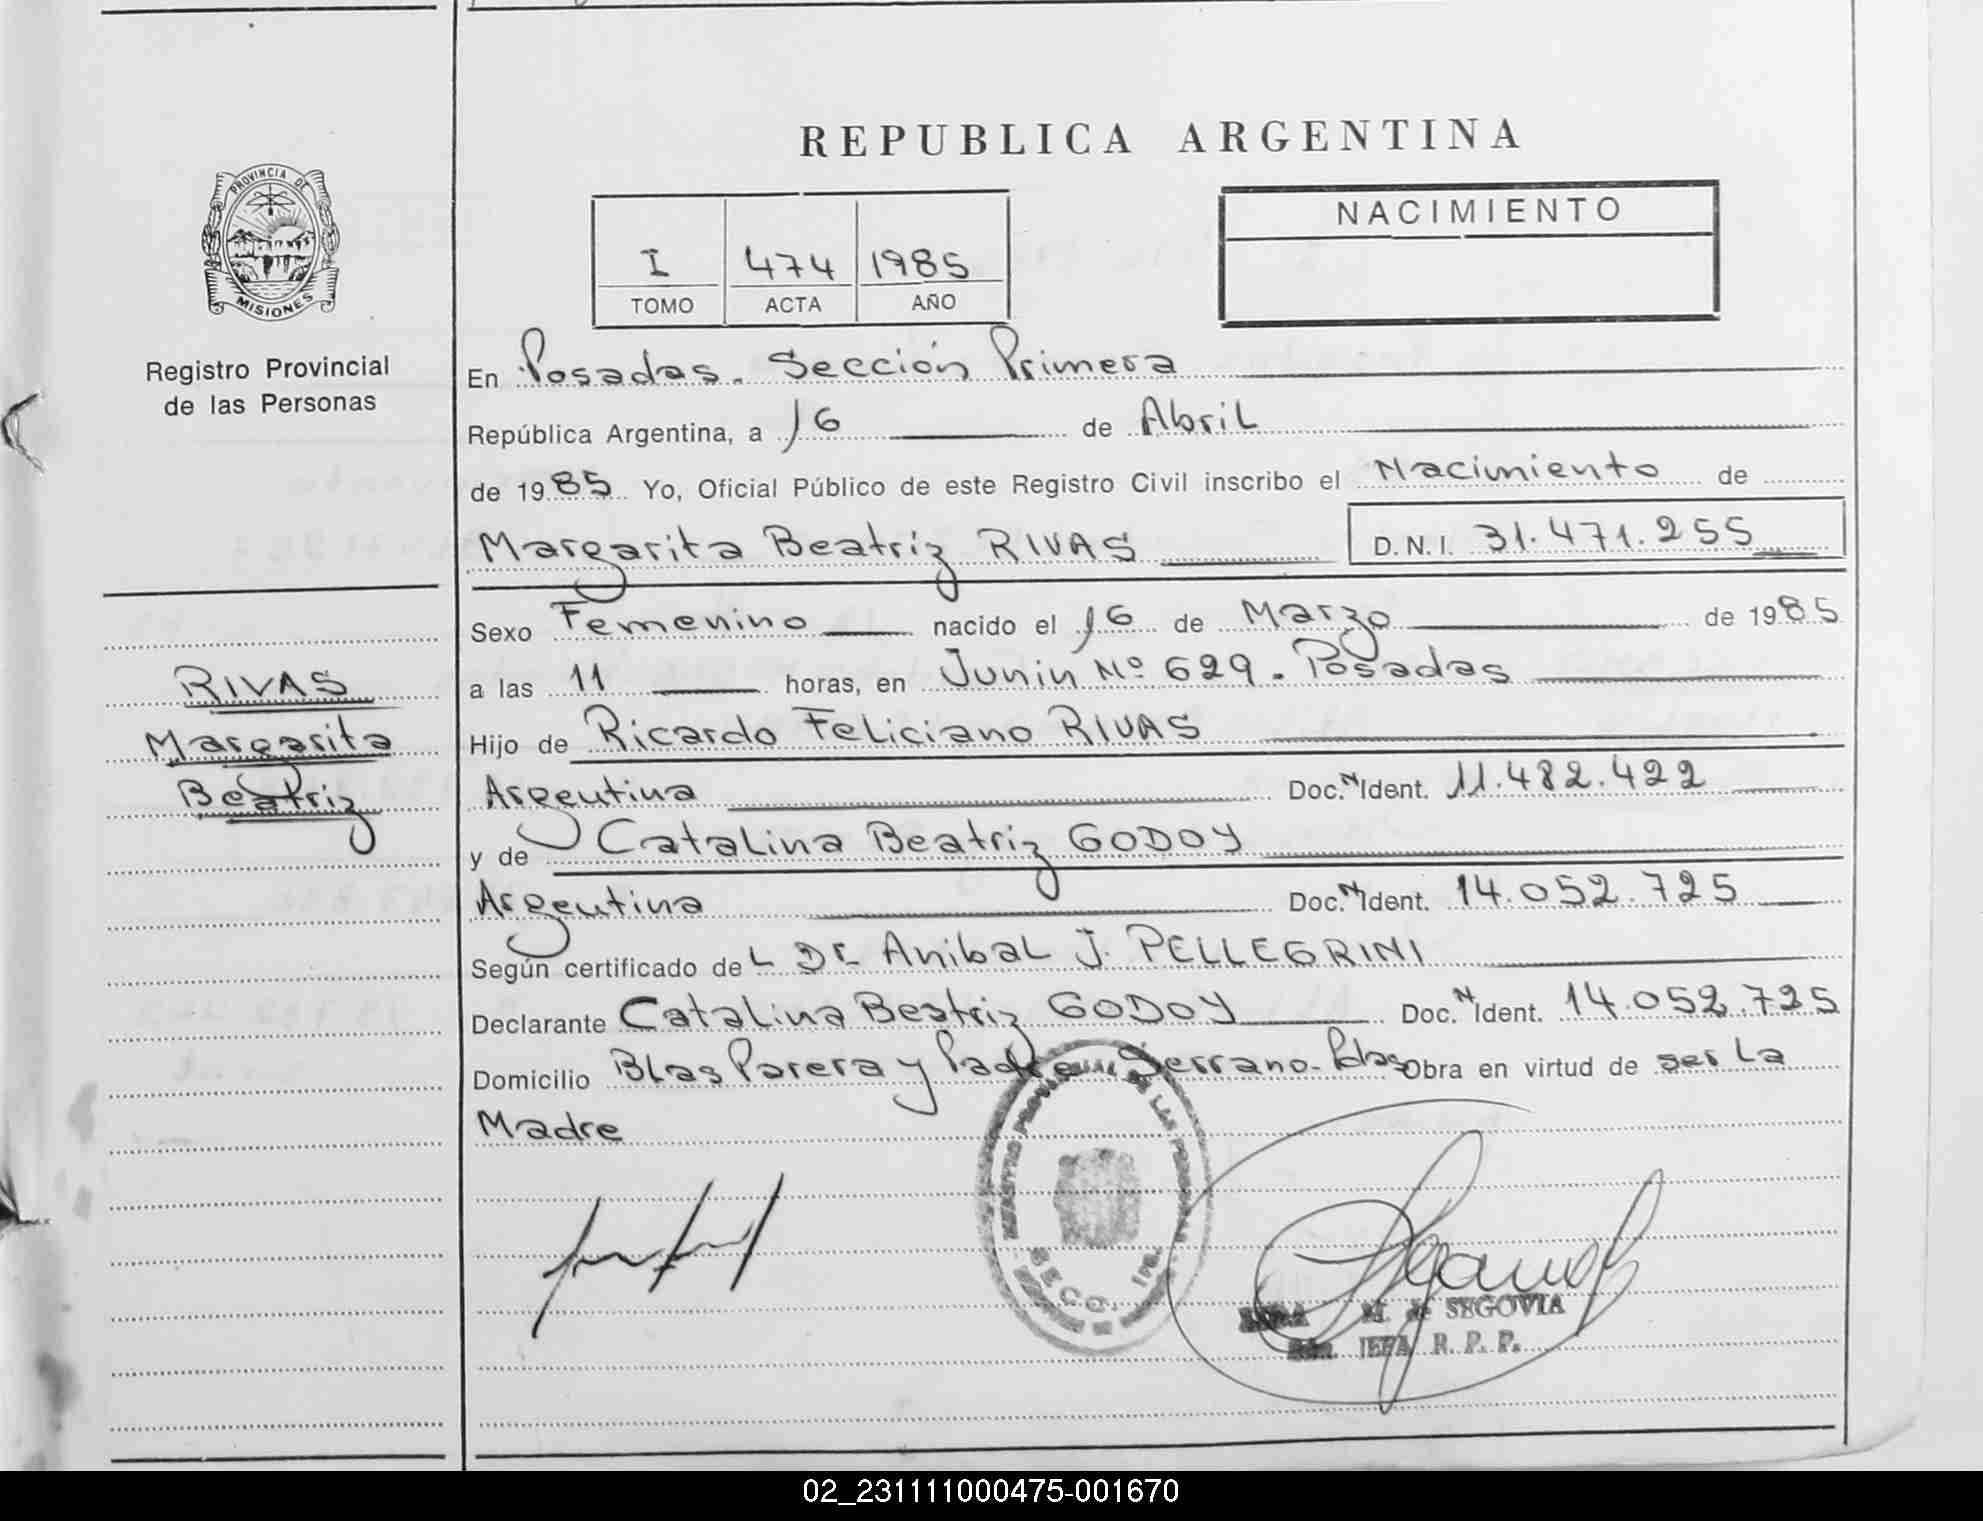 REPUBLICA ARGENTINA
PROVINCIA DE
MISIONES
Registro Provincial
de las Personas
I 474 1985
TOMO ACTA AÑO
NACIMIENTO
En Posadas. Sección Primera
República Argentina, a 16 de Abril
de 1985 Yo, Oficial Público de este Registro Civil inscribo el Nacimiento de
Margarita Beatriz RIVAS D.N.I. 31.471.255
RIVAS
Margarita
Beatriz
Sexo Femenino nacido el 16 de Marzo de 1985
a las 11 horas, en Junin Nº 629. Posadas
Hijo de Ricardo Feliciano RIVAS
Argentina Doc. N Ident. 11.482.422
y de Catalina Beatriz GODOY
Argentina Doc. N Ident. 14.052.725
Según certificado del Dr Anibal J. PELLEGRINI
Declarante Catalina Beatriz GODOY Doc. N Ident. 14.052.725
Domicilio Blas Parera y Padre Serrano- Pdas Obra en virtud de ser la
Madre
SECC. 1ra.
M. de SEGOVIA
JEFA R. P. P.
02_231111000475-001670